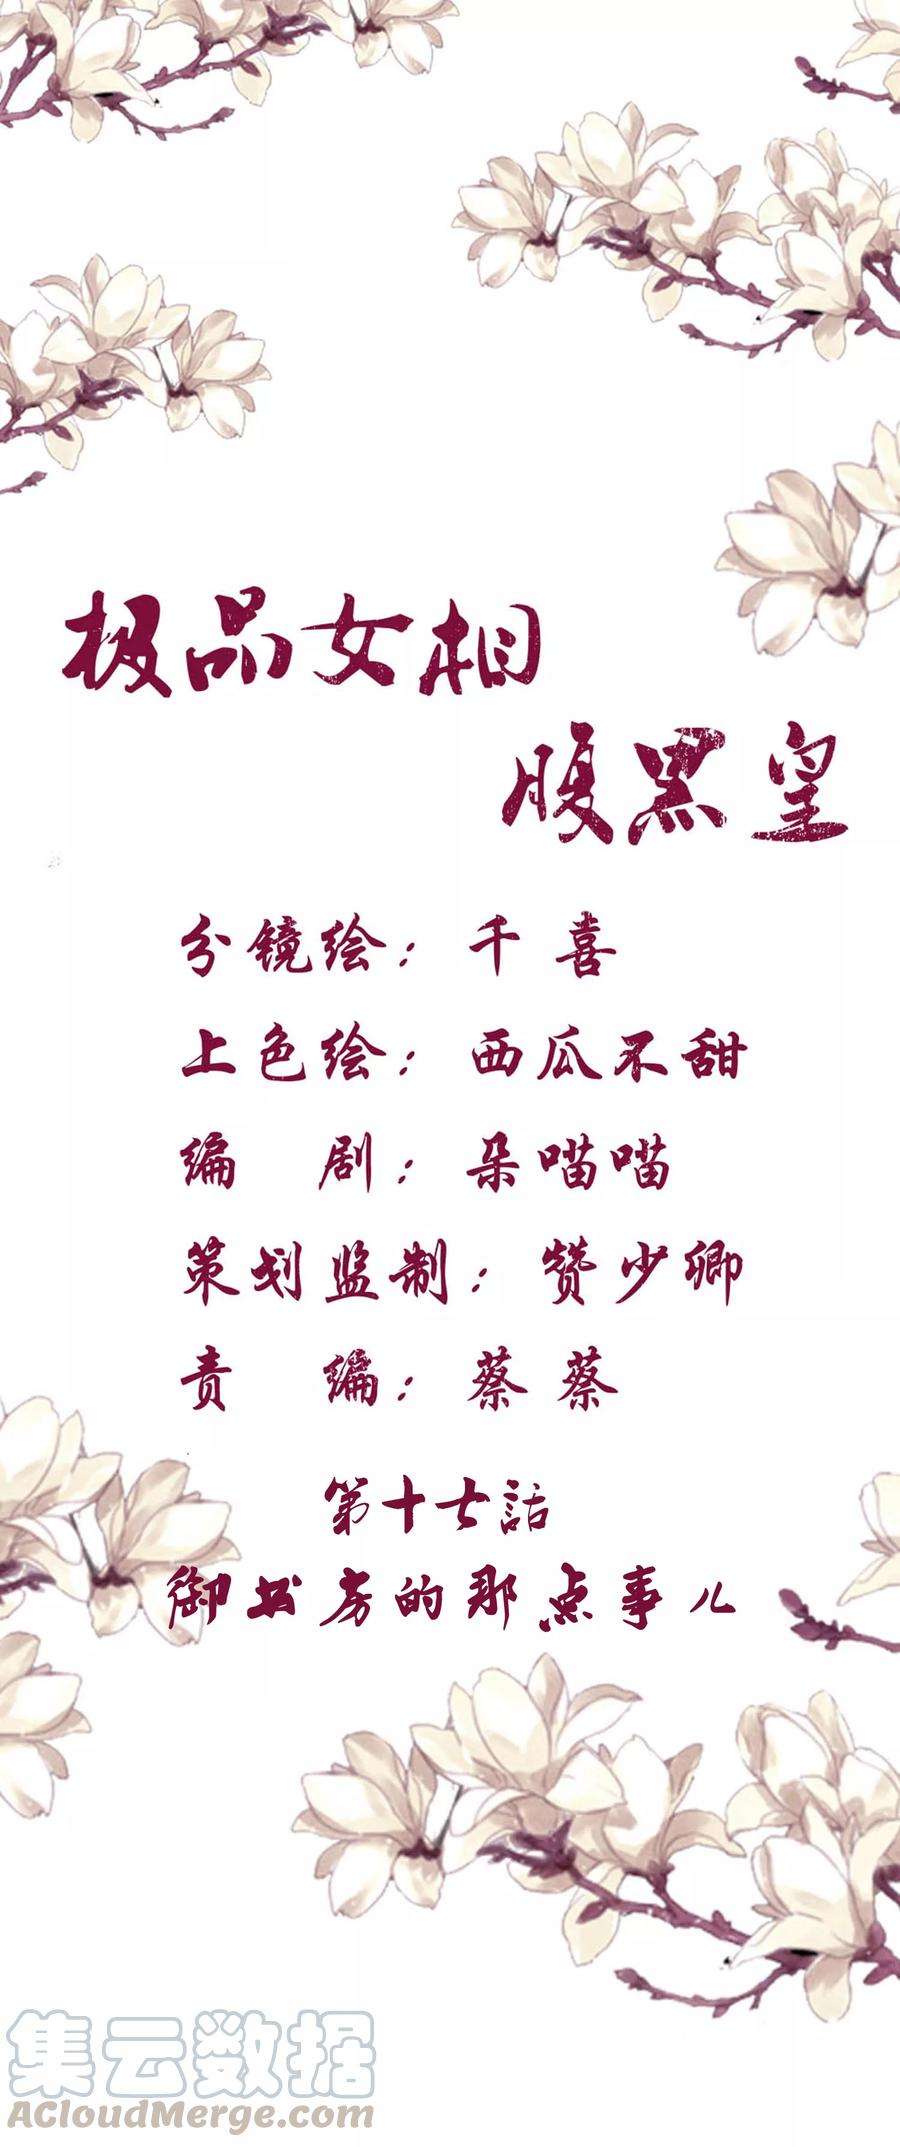 极品女相
腹黑皇
分镜绘：千喜
上色绘：西瓜不甜
编 剧：朵喵喵
策划监制：赞少卿
责 编：蔡蔡
第十七話
御书房的那点事儿
集云数据
ACloudMerge.com